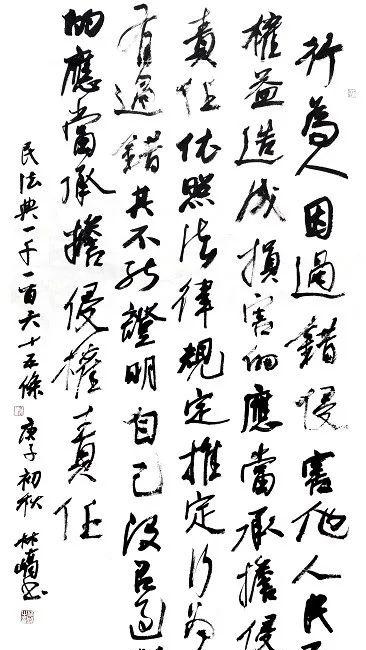 行為人因過錯侵害他人民
權益造成損害的應當承擔侵
責任依照法律規定推定行為
有過錯其不能證明自己沒有過
的應當承擔侵權責任
民法典一千一百六十五條 庚子初秋 林書